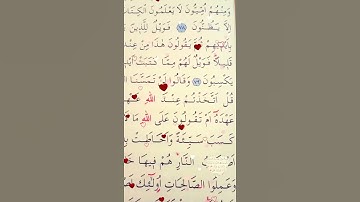 وَمِنْهُمْ أُمِّيُّونَ لَا يَعْلَمُونَ
إِلَّا يَظُنُّونَ ٧٨ فَوَيْلٌ لِّلَّذِينَ
بِأَيْدِيهِمْ ثُمَّ يَقُولُونَ هَٰذَا مِنْ
قَلِيلًا فَوَيْلٌ لَّهُم مِّمَّا كَتَبَتْ
يَكْسِبُونَ ٧٩ وَقَالُوا لَن تَمَسَّنَا
قُلْ أَتَّخَذْتُمْ عِندَ اللَّهِ
عَهْدَهُ أَمْ تَقُولُونَ عَلَى اللَّهِ مَا
كَسَبَ سَيِّئَةً وَأَحَاطَتْ
أَصْحَٰبُ النَّارِ هُمْ فِيهَا
وَعَمِلُوا الصَّالِحَاتِ أُولَٰئِكَ